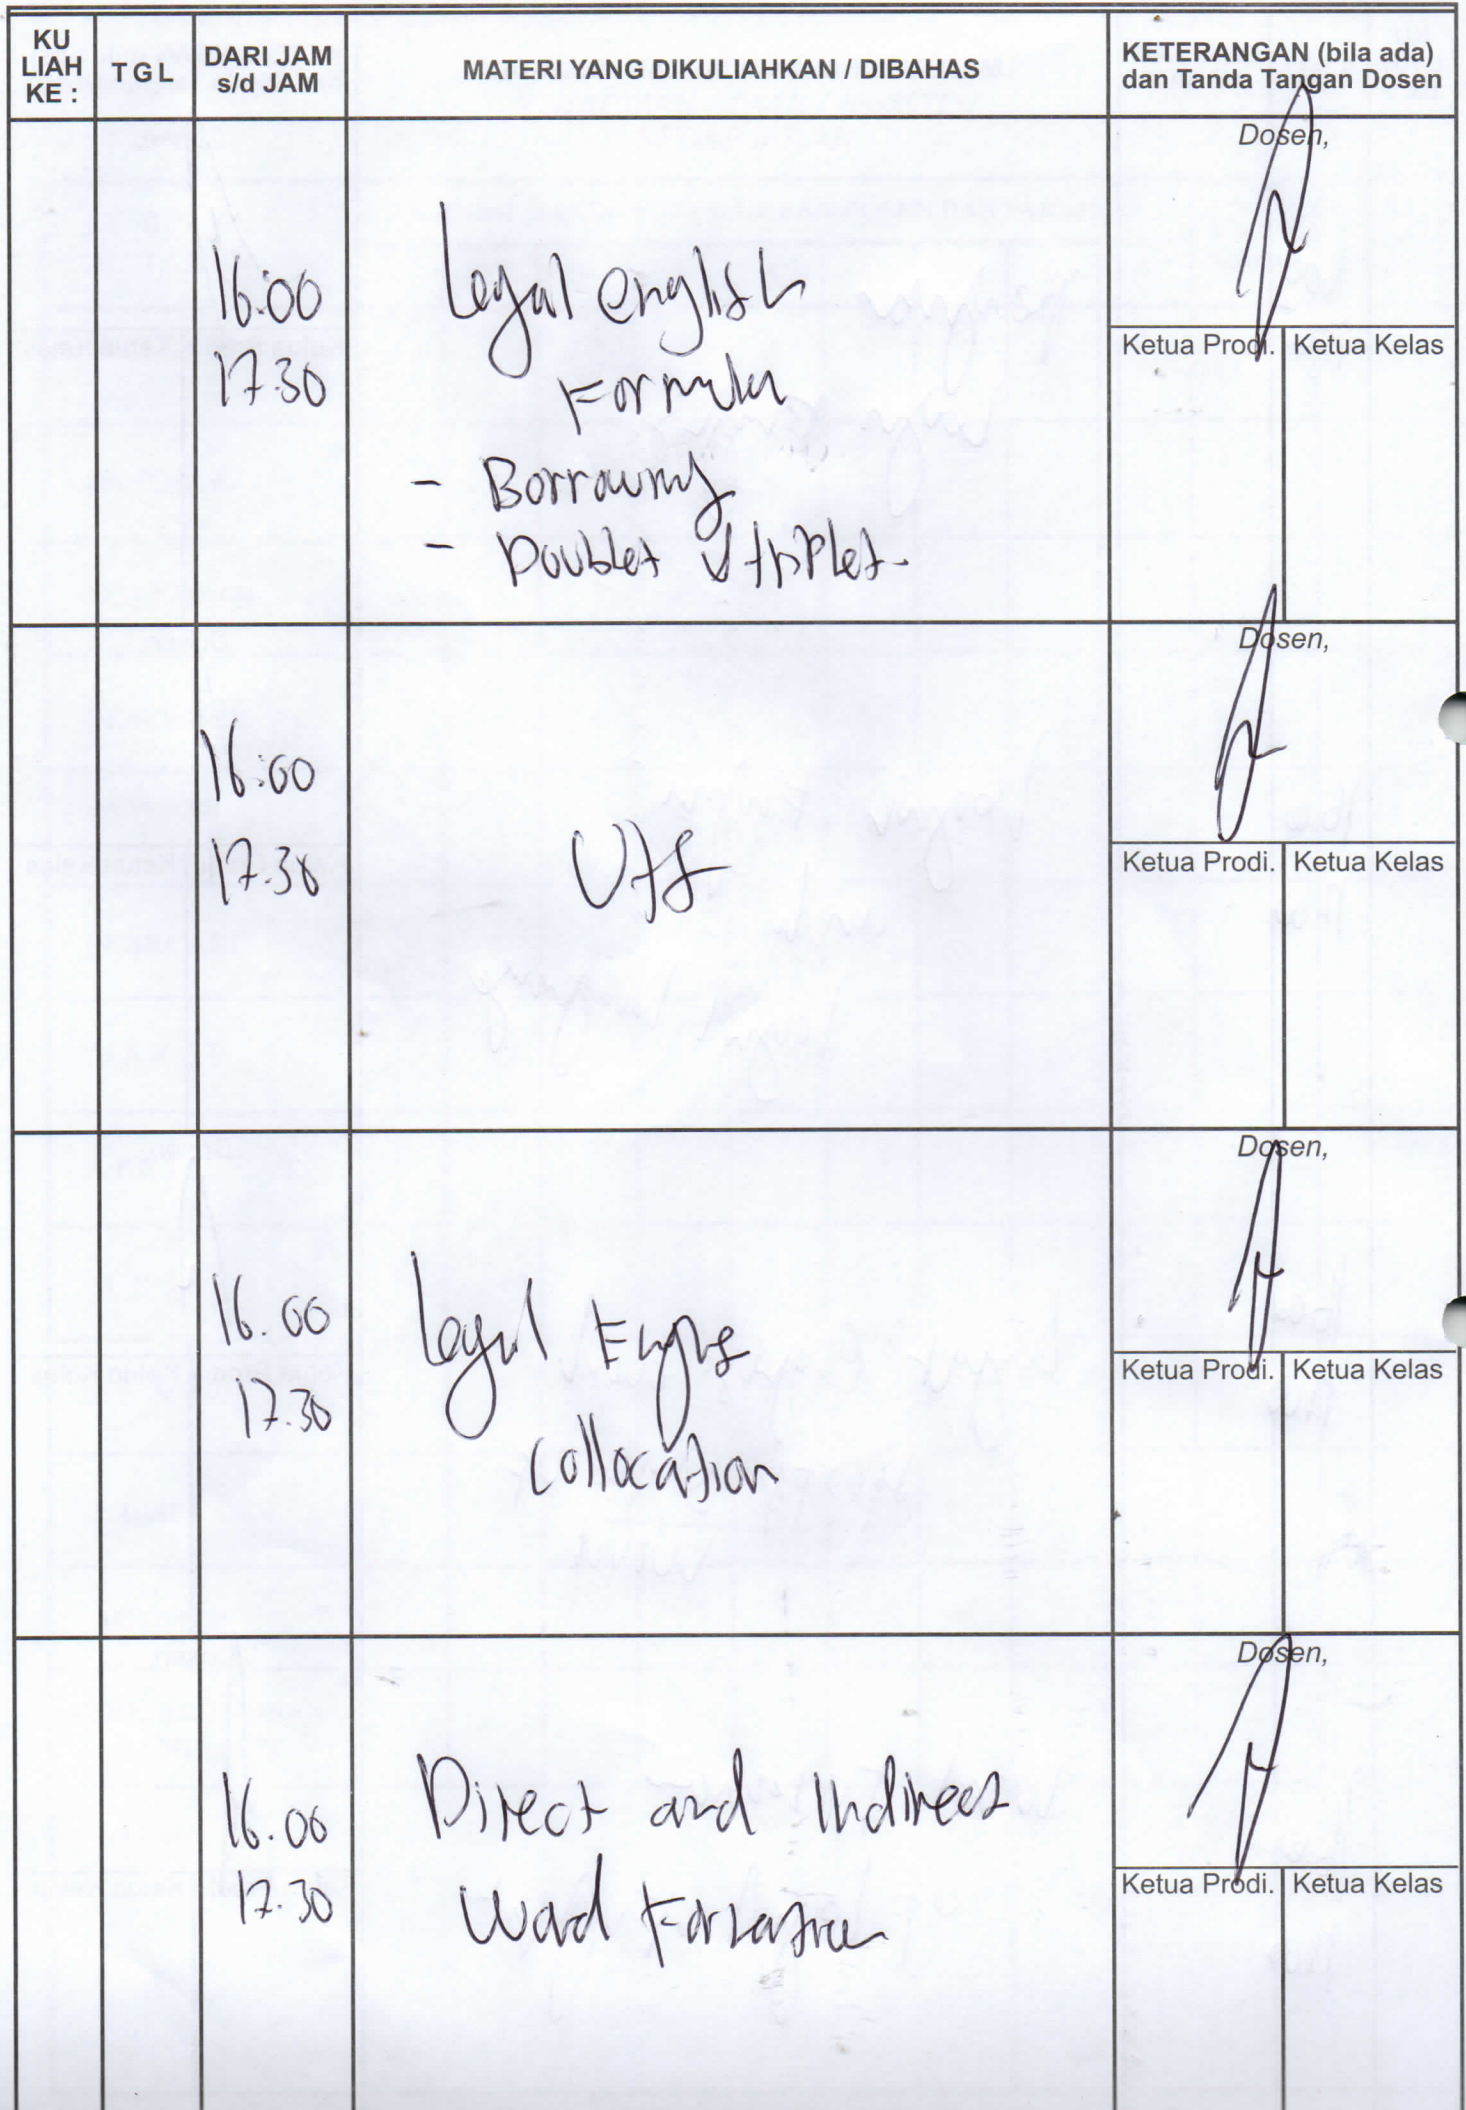 KU
LIAH
KE :
TGL
DARI JAM
s/d JAM
MATERI YANG DIKULIAHKAN / DIBAHAS
KETERANGAN (bila ada)
dan Tanda Tangan Dosen
16:00
17.30
Legal english
Formula
- Borrowing
- Doublet & triplet.
Dosen,
Ketua Prodi. Ketua Kelas
16:00
17.30
UTS
Dosen,
Ketua Prodi. Ketua Kelas
16.00
17.30
Legal
Collocation
Dosen,
Ketua Prodi. Ketua Kelas
16.00
17.30
Direct and Indirect
Word
Dosen,
Ketua Prodi. Ketua Kelas